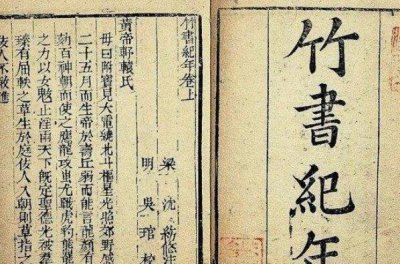 竹書紀年
竹書紀年卷上
梁 沈約附注
明 吳琯校
黃帝軒轅氏
母曰附寶見大電繞北斗樞星光照郊野感
二十五月而生帝於壽丘弱而能言龍顏有
劾百神朝而使之應龍攻蚩尤戰虎豹熊羆
之力以女魃止淫雨天下既定聖德光被羣
臻有屈軼之草生於庭佞人入朝則草指之
佞人不敢進